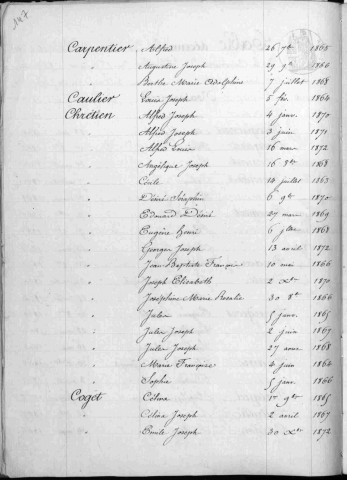 147
Carpentier Alfred 26 7bre 1865
" Augustine Joseph 29 9bre 1866
" Berthe Marie Adolphine 7 juillet 1868
Caulier Louis Joseph 5 fév. 1864
Chrétien Alfred Joseph 4 janv. 1870
" Alfred Joseph 3 juin 1871
" Alfred Louis 16 mars 1872
" Angélique Joseph 16 8bre 1868
" 14 juillet 1863
" Désiré Séraphin 6 9bre 1870
" Edouard Désiré 27 mars 1869
" Eugène Henri 6 1868
" Georges Joseph 13 avril 1872
" Jean Baptiste François 10 mai 1866
" Joseph Elisabeth 2 Xbre 1870
" Joséphine Marie Rosalie 30 8bre 1866
" Jules 5 janv. 1865
" Jules Joseph 2 juin 1867
" Jules Joseph 27 aout 1868
" Marie Françoise 4 juin 1864
" Sophie 5 janv. 1866
Coget Célina 17 9bre 1865
" Célina Joseph 2 avril 1867
" Emile Joseph 30 Xbre 1872